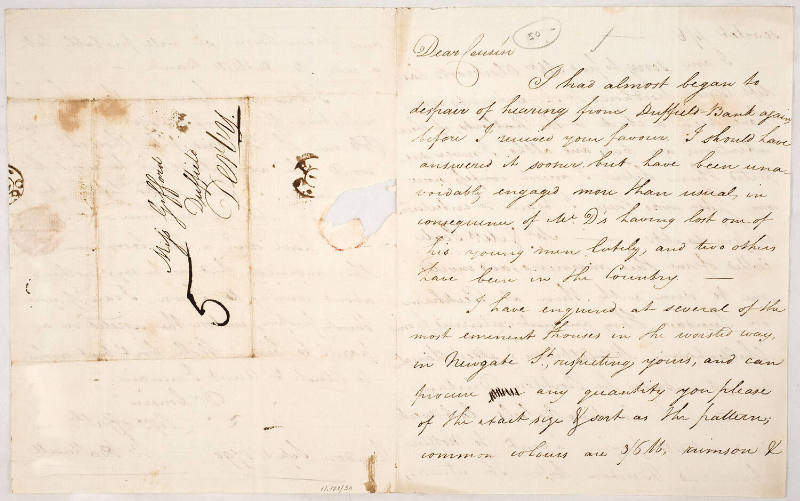 Miss Gifford
Duffield
Derby.
5
50
Dear Cousin
I had almost began to
despair of hearing from Duffield-Bank again,
before I received your favour. I should have
answered it sooner but have been una-
voidably engaged more than usual, in
consequence of Mr D's having lost one of
his young men lately, and two others
have been in the Country. —
I have enquired at several of the
most eminent Houses in the worsted way,
in Newgate St, respecting yours, and can
procure any quantity you please
of the exact size & sort as the pattern;
common colours are 3/6 lb, crimson &